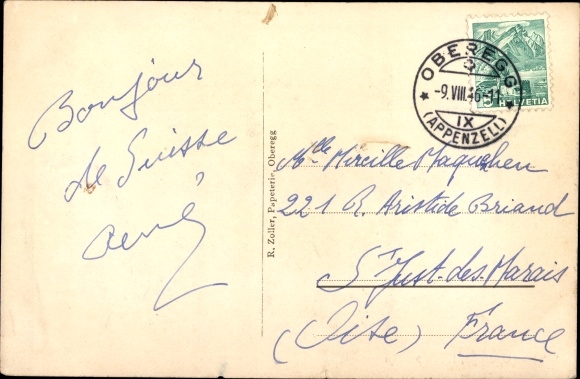 Bonjour
de Suisse
René
R. Zoller, Papeterie, Oberegg
OBEREGG
-9.VIII.46-11
IX
(APPENZELL)
5 HELVETIA
Mlle Mireille Maquehen
221 R. Aristide Briand
St Just-des-Marais
(Oise) France